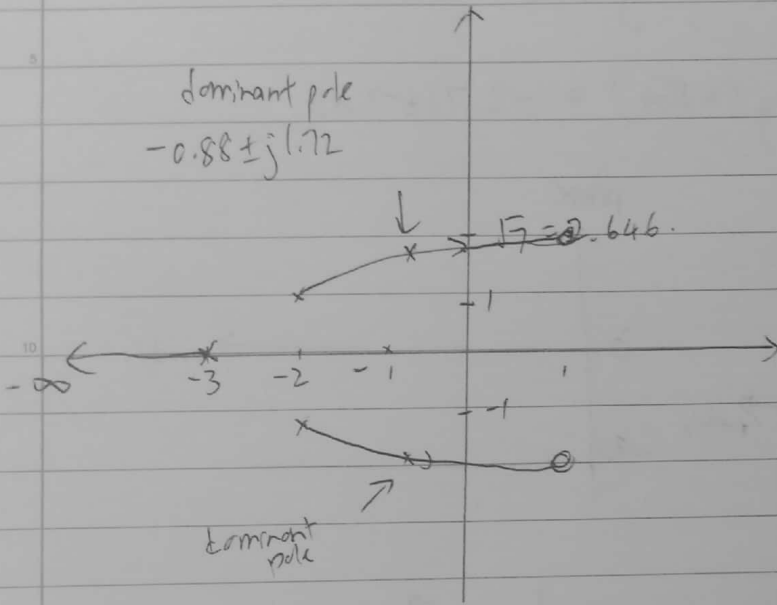 5
dominant pole
-0.88 ± j1.72
√7 = 2.646.
1
10
-∞
-3
-2
-1
1
-1
dominant
pole